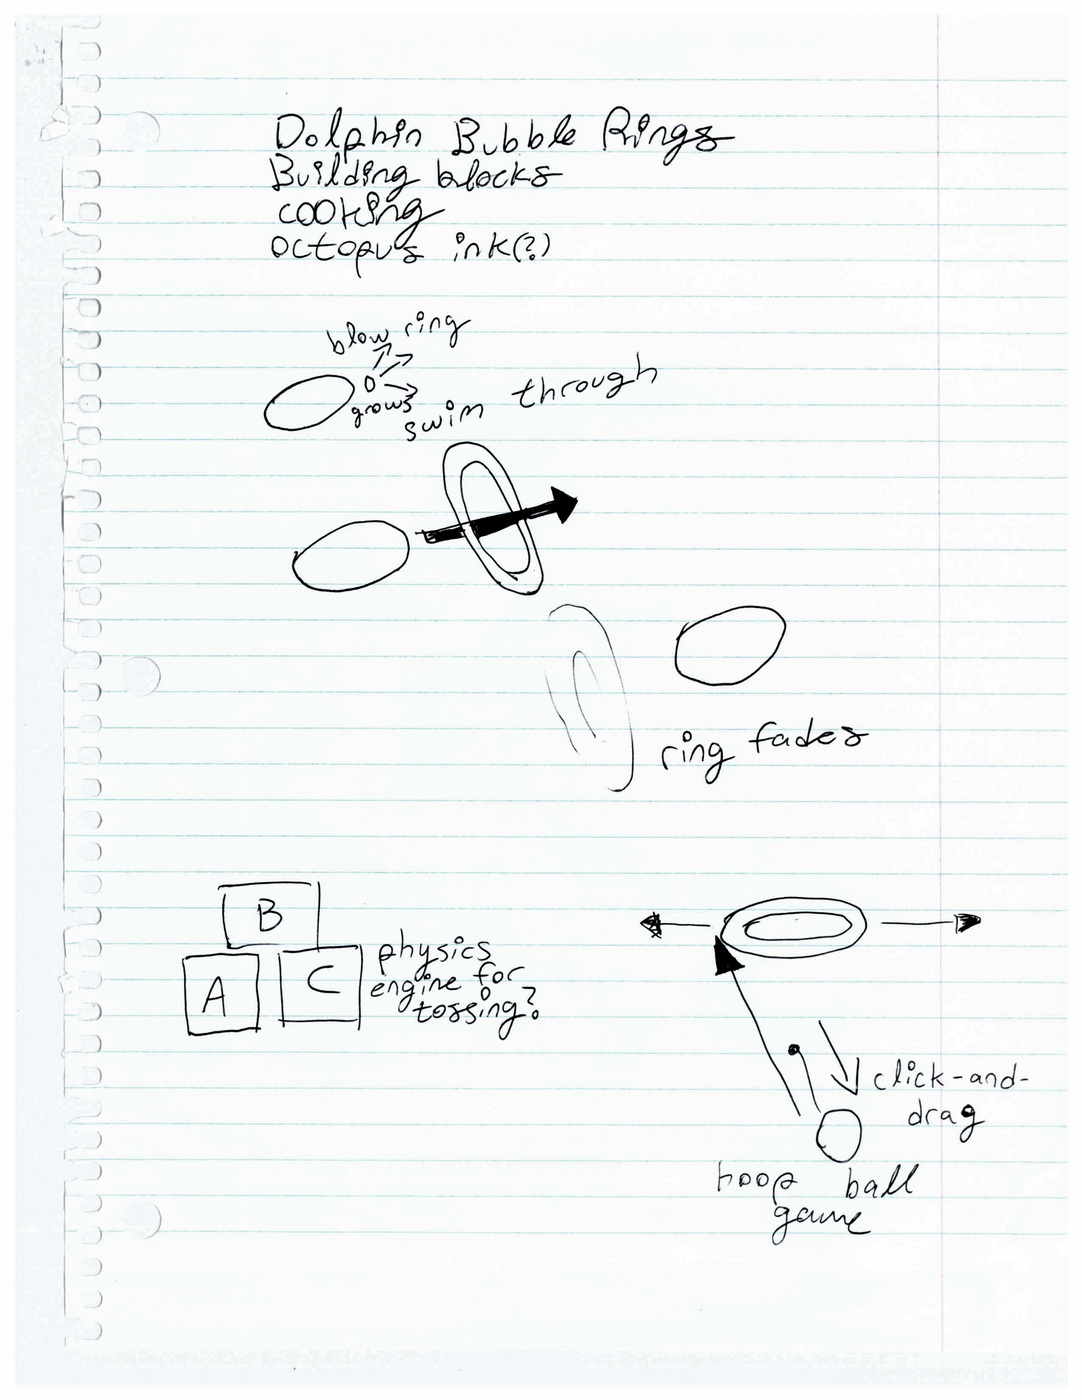 Dolphin Bubble Rings
Building blocks
cooking
octopus ink(?)
blow ring
grows
swim through
ring fades
B
A
C
physics
engine for
tossing?
click-and-
drag
hoop ball
game